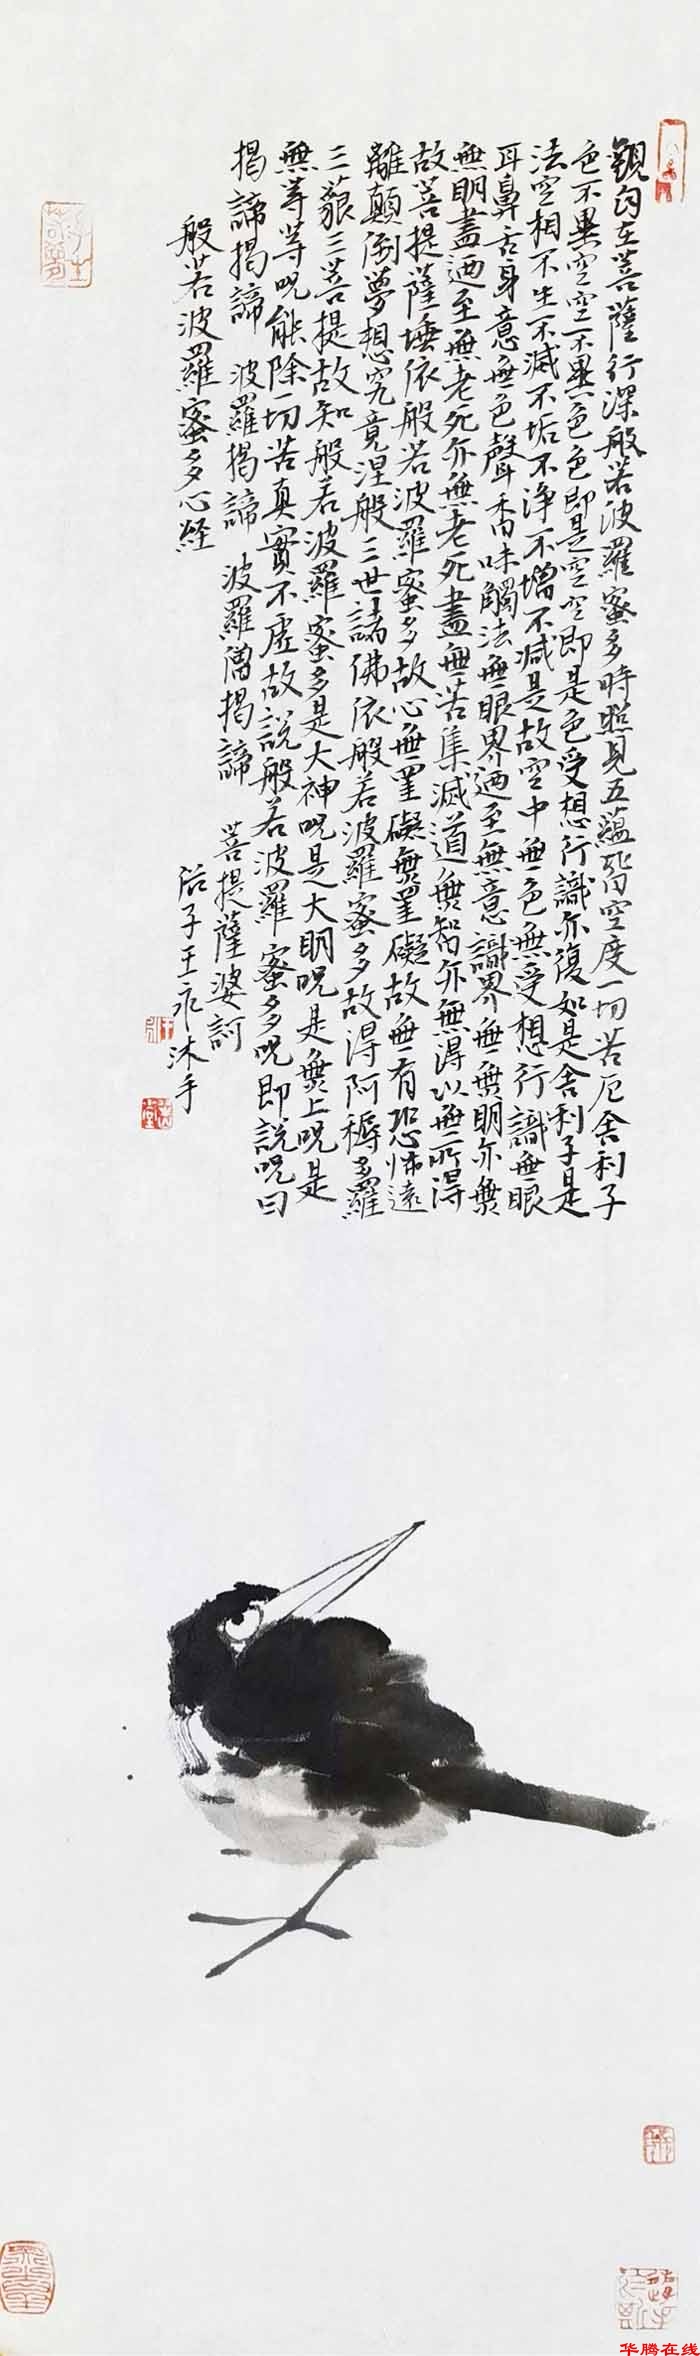 觀自在菩薩行深般若波羅蜜多時照見五蘊皆空度一切苦厄舍利子
色不異空空不異色色即是空空即是色受想行識亦復如是舍利子是
法空相不生不滅不垢不淨不增不減是故空中無色無受想行識無眼
耳鼻舌身意無色聲香味觸法無眼界迺至無意識界無無明亦無
無明盡迺至無老死亦無老死盡無苦集滅道無智亦無得以無所得
故菩提薩埵依般若波羅蜜多故心無罣礙無罣礙故無有恐怖遠
離顛倒夢想究竟涅般三世諸佛依般若波羅蜜多故得阿耨多羅
三藐三菩提故知般若波羅蜜多是大神呪是大明呪是無上呪是
無等等呪能除一切苦真實不虛故說般若波羅蜜多呪即說呪曰
揭諦揭諦 波羅揭諦 波羅僧揭諦 菩提薩婆訶
般若波羅蜜多心経
子王永沐手
华腾在线